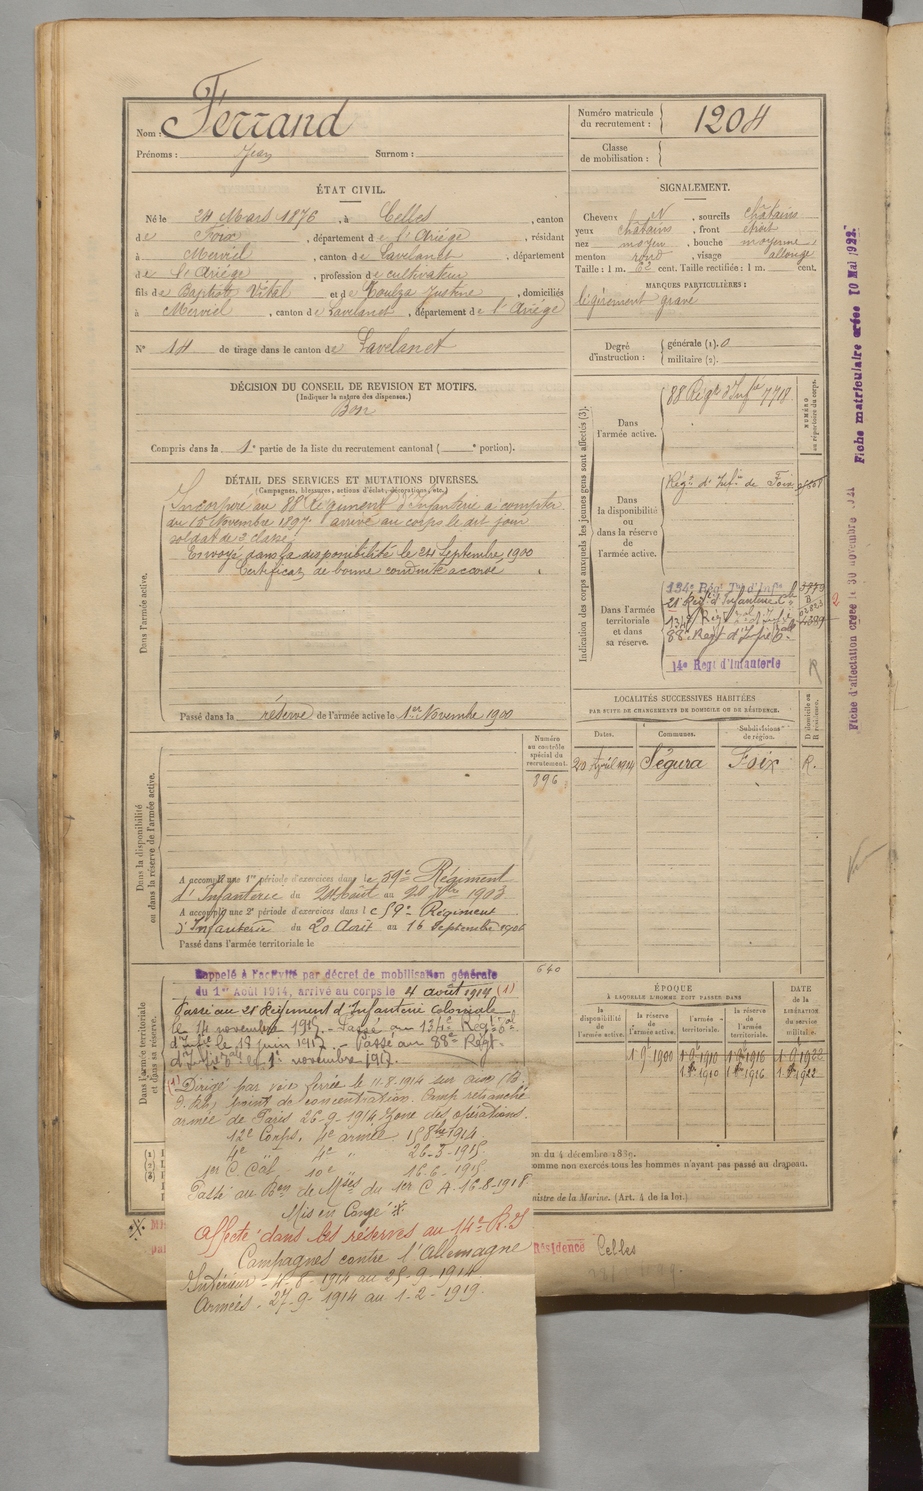 Nom : Ferrand
Prénoms : Jean Surnom :
Numéro matricule
du recrutement : 1204
Classe
de mobilisation :
ÉTAT CIVIL.
Né le 24 Mars 1876, à Celles, canton
de Foix, département de l'Ariége, résidant
à Merviel, canton de Lavelanet, département
de l'Ariége, profession de cultivateur
fils de Baptiste Vital et de Toulza Justine, domiciliés
à Merviel, canton de Lavelanet, département de l'Ariége
N° 14 de tirage dans le canton de Lavelanet
SIGNALEMENT.
Cheveux N, sourcils châtains
yeux châtains, front étroit
nez moyen, bouche moyenne,
menton rond, visage allongé
Taille : 1 m. 62 cent. Taille rectifiée : 1 m. cent.
MARQUES PARTICULIÈRES :
légèrement gravé
Degré
d'instruction :
générale (1). 0
militaire (2).
DÉCISION DU CONSEIL DE REVISION ET MOTIFS.
(Indiquer la nature des dispenses.)
Bon
Compris dans la 1e partie de la liste du recrutement cantonal ( e portion).
DÉTAIL DES SERVICES ET MUTATIONS DIVERSES.
(Campagnes, blessures, actions d'éclat, décorations, etc.)
Dans l'armée active.
Incorporé au 88e Régiment d'Infanterie à compter
du 15 Novembre 1897 arrivé au corps le dit jour
soldat de 2e classe.
Envoyé dans la disponibilité le 24 Septembre 1900
Certificat de bonne conduite accordé
Passé dans la réserve de l'armée active le 1er Novembre 1900
Indication des corps auxquels les jeunes gens sont affectés (3).
NUMÉRO
au répertoire du corps.
Dans
l'armée active.
88 Régt d'Infie 7718
Dans
la disponibilité
ou
dans la réserve
de
l'armée active.
Régt d'Infie de Foix
Dans l'armée
territoriale
et dans
sa réserve.
134e Rég Ter d'Inf
21e Régt d'Infanterie Cle
88e Régt d'Infie
14e Regt d'Infanterie
R
LOCALITÉS SUCCESSIVES HABITÉES
PAR SUITE DE CHANGEMENTS DE DOMICILE OU DE RÉSIDENCE.
Dates. Communes. Subdivisions de région. D domicile ou R résidence.
20 Avril 1914 Ségura Foix R.
Dans la disponibilité
ou dans la réserve de l'armée active.
Numéro
au contrôle
spécial du
recrutement.
896
A accompli une 1re période d'exercices dans le 59e Régiment
d'Infanterie du 24 Août au 20 7bre 1903
A accompli une 2e période d'exercices dans le 59e Régiment
d'Infanterie du 20 Août au 16 Septembre 1906
Passé dans l'armée territoriale le
Dans l'armée territoriale
et dans sa réserve.
640
Rappelé à l'activité par décret de mobilisation générale
du 1er Août 1914, arrivé au corps le 4 août 1914 (1)
Passé au 21e Régiment d'Infanterie Coloniale
le 14 novembre 1915. - Passé au 134e Régt
d'Infie le 18 juin 1917. - Passé au 88e Régt.
d'Infie le 1er novembre 1917.
(1) Dirigé par voie ferrée le 11-8-1914 sur
point de concentration. Camp retranché
armée de Paris 26-9-1914 zone des opérations.
12e Corps, 4e armée 15 8bre 1914
4e " 4e " 26-3-1915
1er C. Col 10e " 16-6-1915
Passé au Bon de Mses du 1er C A 16-8-1918
Mis en Congé
Affecté dans les réserves au 14e R.I
Campagnes contre l'Allemagne
Intérieur - 4-8-1914 au 25-9-1914
Armées - 27-9-1914 au 1-2-1919.
ÉPOQUE
À LAQUELLE L'HOMME DOIT PASSER DANS
DATE
de la
LIBÉRATION
du service
militaire.
la
disponibilité
de
l'armée active.
la réserve
de
l'armée active.
l'armée
territoriale.
la réserve
de
l'armée
territoriale.
1 9b 1900 1 9b 1910 1 9b 1916 1 9 1922
1 8b 1910 1 8b 1916 1 8 1922
on du 4 décembre 1889.
omme non exercés tous les hommes n'ayant pas passé au drapeau.
nistre de la Marine. (Art. 4 de la loi.)
Résidence Celles
Fiche matriculaire créée 10 Mai 1922
Fiche d'affectation créée le 30 novembre 1921